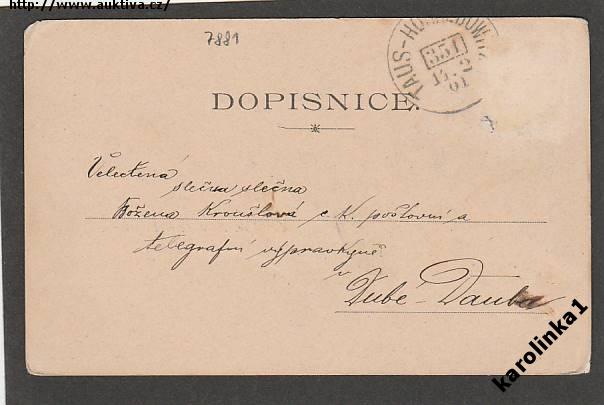 http://www.auktiva.cz/
7881
TAUS-HO
351
91
DOPISNICE.
Veletená
slečna slečna
Božena Kroušlová c K. poštovní a
telegrafní výpravkyně
v
Dubé-Dauba
karolinka1